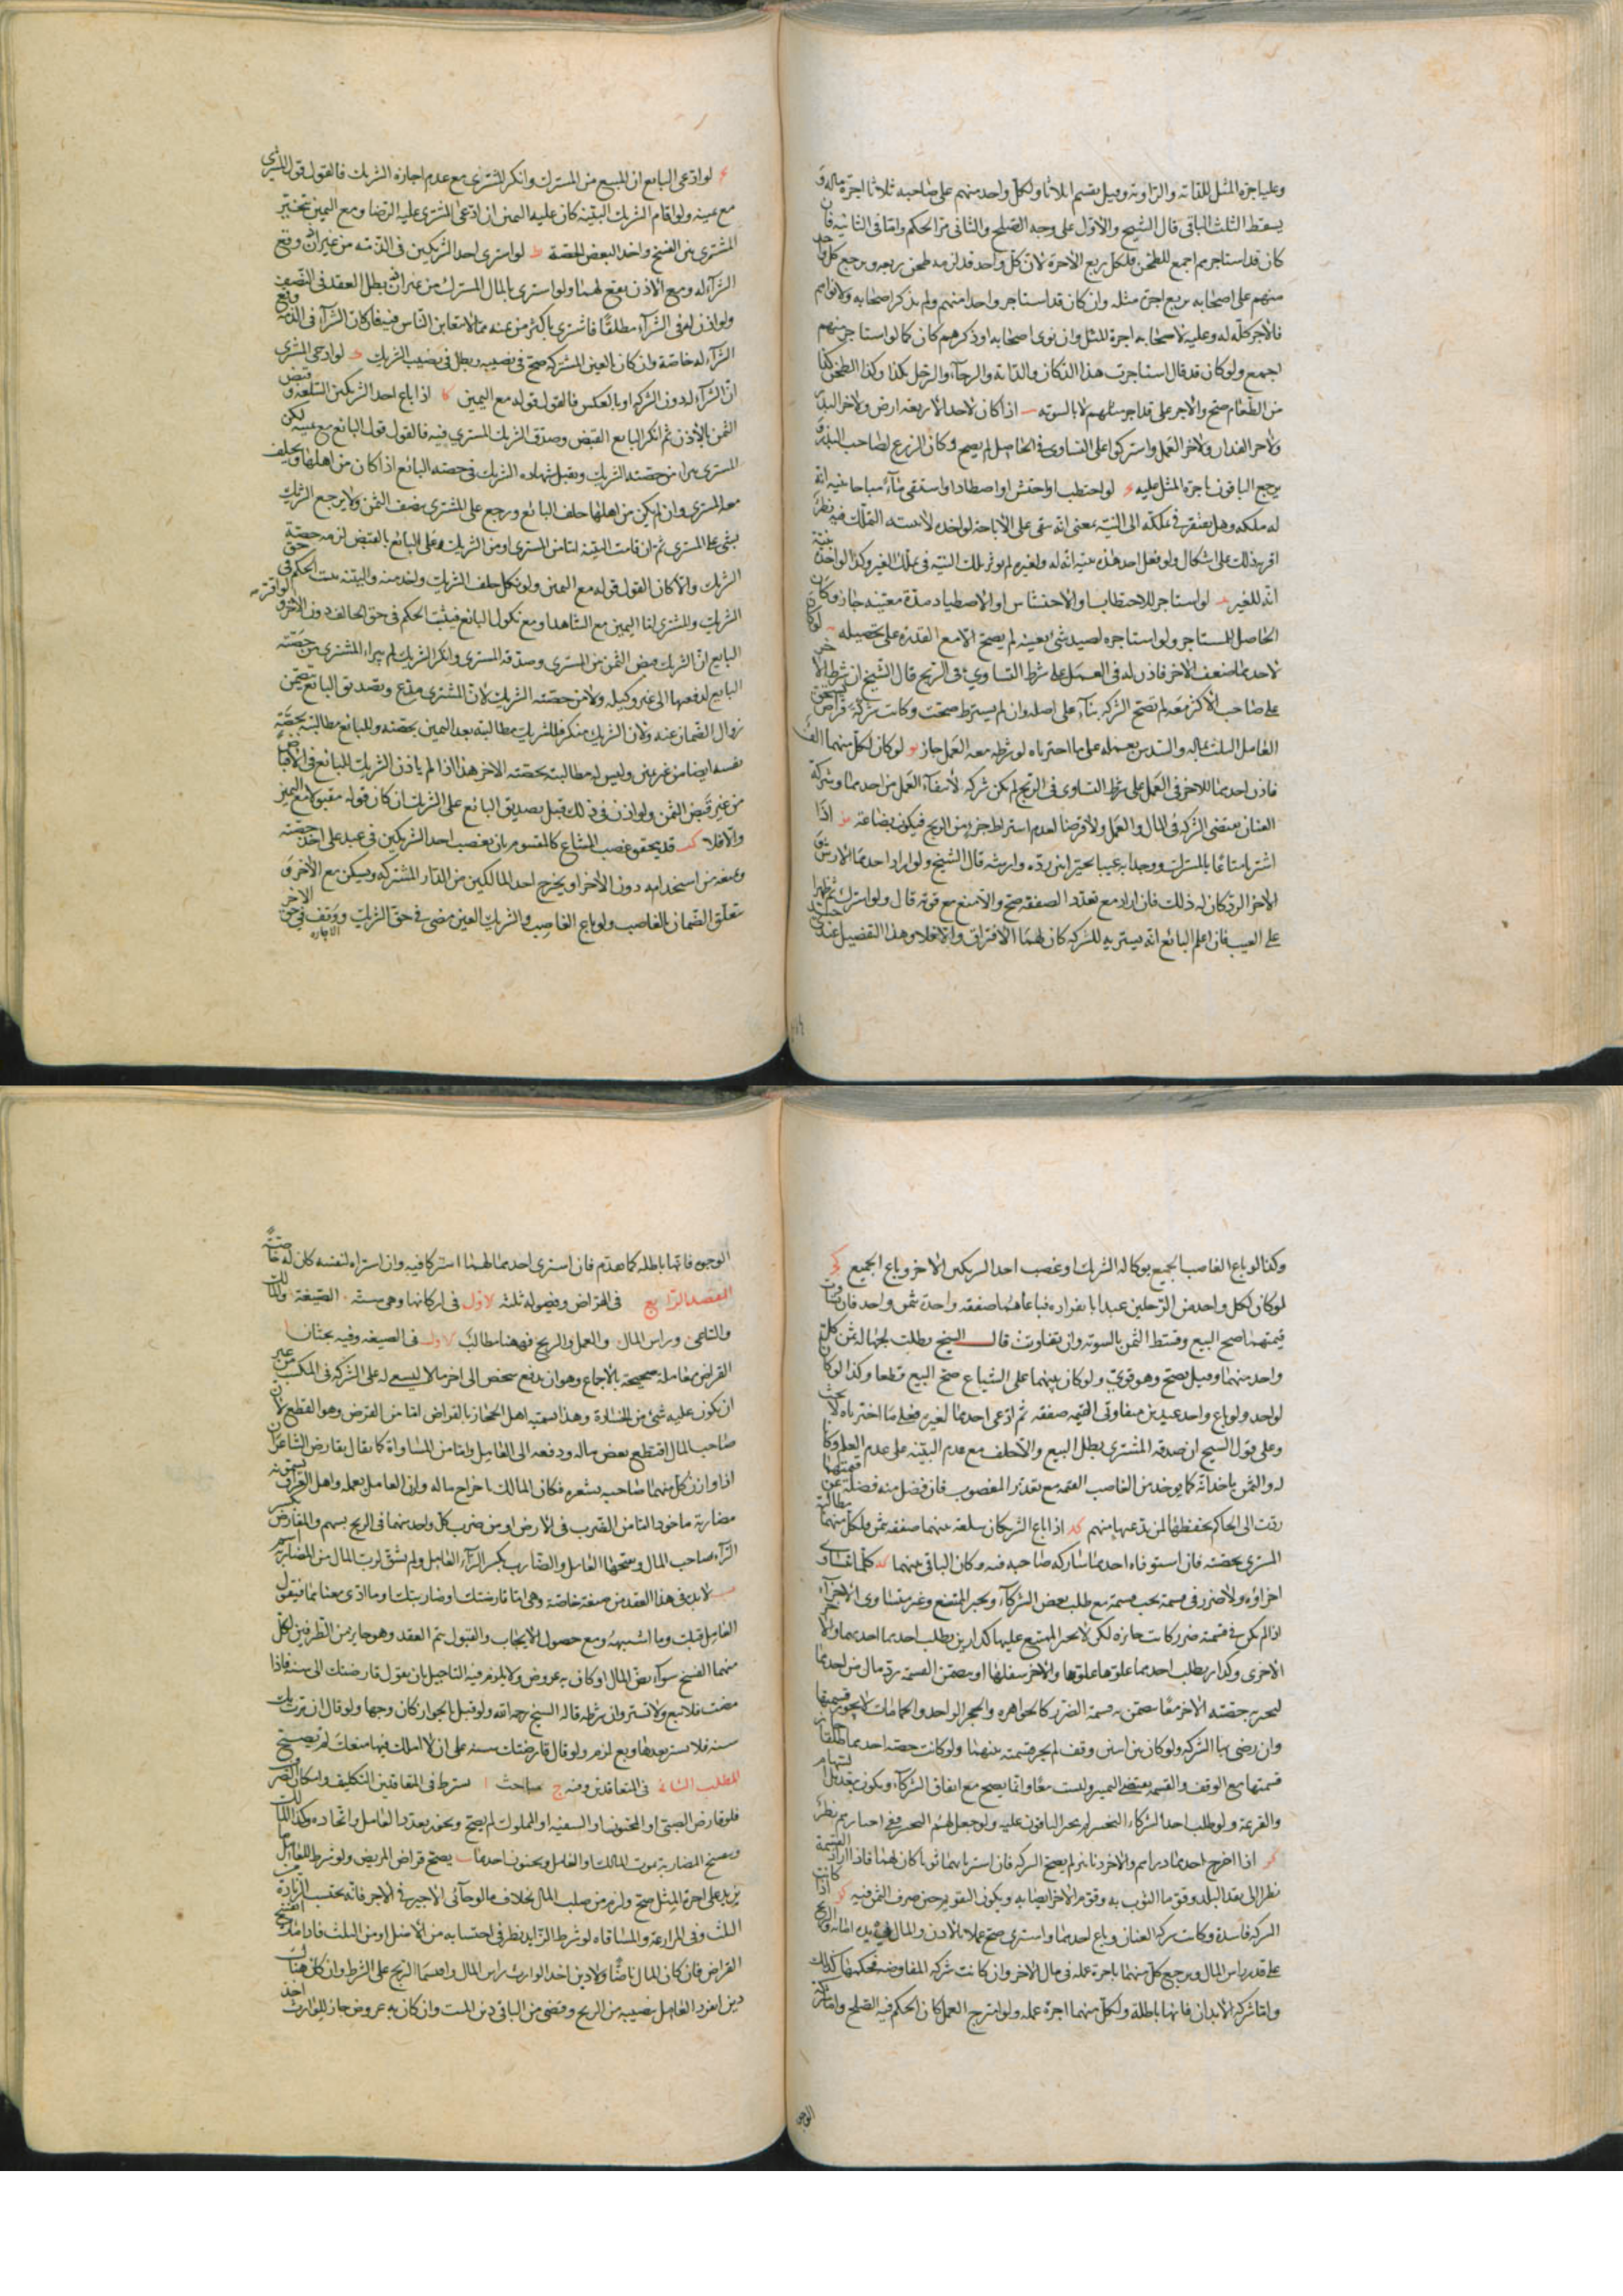 وعليه اجرة المثل للقاته والراوية وقيل يقسم اثلاثا ولكل واحد منهم على صاحبه ثلاثا اجرة ماله و
يسقط الثلث الباقي قال الشيخ والاول على وجه الصلح والثاني مر الحكم واما في الثانية فان
كان قد استاجرهم اجمع للطحن فلكل ربع الاجرة لان كل واحد قد لزمه طحن ربعه ويرجع كل واحد
منهم على اصحابه بربع اجرة مثله وان كان قد استاجر واحدا منهم ولم يذكر اصحابه ولا نواهم
فالاجر كله له وعليه لاصحابه اجرة المثل وان نوى اصحابه او ذكرهم كان كما لو استاجر منهم
اجمع ولو كان قد قال استاجرت هذا الدكان والدابة والرحا والرجل بكذا وكذا الطحن كذا
من الطعام صح والاجر على قدر اجر مثلهم لا بالسوية اذا كان لاحد الاربعة ارض ولاخر البذر
ولاخر الفدان ولاخر العمل واشتركوا على التساوي في الحاصل لم يصح وكان الزرع لصاحب البذر و
يرجع الباقون باجرة المثل عليه لو احتطب او احتش او اصطاد او استقى ماء مباحا بنية انه
له ملكه وهل يفتقر في تملكه الى النية بمعنى انه يبقى على الاباحة لو اخذه لا بنية التملك فيه نظر
اقربه ذلك على اشكال ولو فعل احد هذه بنية انه له ولغيره لم يؤثر تلك النية في تملك الغير وكذا لو اخذه بنية
انه للغير لو استاجر للاحتطاب او الاحتشاش او الاصطياد مدة معينة جاز وكان
الحاصل للمستاجر ولو استاجره لصيد شئ بعينه لم يصح الا مع القدرة على تحصيله لو كان
لاحدهما ضعف الاخر فاذن له في العمل على شرط التساوي في الربح قال الشيخ ان شرطا
على صاحب الاكثر معه لم تصح الشركة بناء على اصله وان لم يشترط صحت وكانت شركة قراض
العامل الثلث بماله والسدس بعمله على ما اخترناه لو شرطه معه العمل جاز لو كان لكل منهما الف
فاذن احدهما للاخر في العمل على شرط التساوي في الربح لم يكن شركة لانتفاء العمل من احدهما وشركة
العنان مقتضى الشركة في المال والعمل ولا قرضا لعدم اشتراط جزء من الربح فيكون بضاعة اذا
اشتريا متاعا بالشركة ووجدا به عيبا تخيرا بين رده وارشه قال الشيخ ولو اراد احدهما الارش و
الاخر الرد كان له ذلك فان اراد مع تعدد الصفقة صح والا منع مع قوته قال ولو اشترك ثم ظهرا
على العيب فان اعلم البائع انه يشتريه للشركة كان لهما الافتراق والا فلا وهذا التفصيل عندي
لو ادعى البائع ان المبيع من المشترك وانكر المشتري مع عدم اجازة الشريك فالقول قول المشتري
مع يمينه ولو اقام الشريك البينة كان عليه اليمين ان ادعى المشتري عليه الرضا ومع اليمين تخير
المشتري بين الفسخ واخذ البعض بالحصة لو اشترى احد الشريكين في الذمة من غير اذن وقع
الشراء له ومع الاذن يقع لهما ولو اشترى بالمال المشترك من غير اذن بطل العقد في النصف
ولو اذن له في الشراء مطلقا فاشترى باكثر من ثمنه مما لا يتغابن الناس فيه فان كان الشراء في الذمة وقع
الشراء له خاصة وان كان بالعين المشتركة صح في نصيبه وبطل في نصيب الشريك لو ادعى المشتري
ان الشراء له دون الشركة او بالعكس فالقول قوله مع اليمين اذا باع احد الشريكين السلعة وقبض
الثمن بالاذن ثم انكر البايع القبض وصدق الشريك المشتري فيه فالقول قول البائع مع يمينه لكن
المشتري يبرا من حصة الشريك ويقبل شهادة الشريك في حصة البائع اذا كان من اهلها ويحلف
معه المشتري وان لم يكن من اهلها حلف البائع ورجع على المشتري بنصف الثمن ولا يرجع الشريك
بشئ على المشتري ثم ان قامت البينة اما من المشتري او من الشريك وعلى البائع بالقبض لزمه حصة
الشريك والا كان القول قوله مع اليمين ولو نكل حلف الشريك واخذ منه والبينة يثبت الحكم في حق
الشريك والمشتري اما اليمين مع الشاهد او مع نكول البائع فيثبت الحكم في حق الحالف دون الاخر ولو اقر
البايع ان الشريك قبض الثمن من المشتري وصدقه المشتري وانكر الشريك لم يبراء المشتري من حصة
البايع لدفعها الى غير وكيله ولا من حصة الشريك لان المشتري مدع وتصديق البائع يتضمن
زوال الضمان عنه ولان الشريك منكر فللشريك مطالبته بعد اليمين بحصته وللبائع مطالبته بحصة
نفسه ايضا من غير يمين وليس له مطالبته بحصته الاخر هذا اذا لم ياذن الشريك للبائع في الاقباض
من غير قبض الثمن ولو اذن في ذلك قبل تصديق البائع على الشريك ان كان قوله مقبولا مع اليمين
والا فلا قد يتحقق غصب المشاع كالمقسوم بان يغصب احد الشريكين في عبد على اخذ حصته
ويمنعه من استخدامه دون الاخر او يخرج احد المالكين من الدار المشتركة ويسكن مع الاخر و
يتعلق الضمان بالغاصب ولو باع الغاصب والشريك العين مضى في حق الشريك ووقف في حق الاخر
الاجازه
وكذا لو باع الغاصب الجميع بوكالة الشريك او غصب احد الشريكين الاخر وباع الجميع
لو كان لكل واحد من الرجلين عبدا بانفراده فباعاهما صفقة واحدة بثمن واحد فان تساوت
قيمتهما صح البيع وقسط الثمن بالسوية وان تفاوتت قال الشيخ بطلت لجهالة ثمن كل
واحد منهما وقيل يصح وهو قوي ولو كان بينهما على الشياع صح البيع قطعا وكذا لو كان
لواحد ولو باع واحد عبدين متفاوتي القيمة صفقة ثم ادعى احدهما لغيره فعلى ما اخترناه لا بحث
وعلى قول الشيخ ان صدقه المشتري بطل البيع والا حلف مع عدم البينة على عدم العلم وكانا
له والثمن ياخذانه كما يوخذ من الغاصب القيمة مع تعذر المغصوب فان فضل منه فضلة عن قيمتهما
ردت الى الحاكم يحفظها لمن يدعيها منهم اذا باع الشريكان سلعة بينهما صفقة بثمن فلكل منهما مطالبة
المشتري بحصته فان استوفاه احدهما شاركه صاحبه فيه وكان الباقي بينهما كلما تتساوى
اجزاؤه ولا ضرر في قسمته يجب قسمته مع طلب بعض الشركاء ويجبر الممتنع وغير متساوي الاجزاء
اذا لم يكن في قسمته ضرر كانت جائزة لكن لا يجبر الممتنع عليها كدارين يطلب احدهما احديهما والاخر
الاخرى وكدار يطلب احدهما علوها والاخر سفلها او يتضمن القسمة رد مال من احدهما
ليجبر به حصة الاخر معا يتضمن قسمته الضرر كالجواهر والحجر الواحد والحمامات لا يجوز قسمتها
وان رضي بها الشركة ولو كان بين اسين وقف لم يجز قسمته بينهما ولو كانت حصة احدهما طلقا جاز
قسمتها مع الوقف والقسمة يقتضي التمييز وليست بيعا وانما يصح مع اتفاق الشركاء ويكون بتعديل السهام
والقرعة ولو طلب احد الشركاء التخيير لم يجبر الباقون عليه ولو جعل لهم التخيير ففي اجبارهم نظر
اذا اخرج احدهما دراهم والاخر دنانير لم يصح الشركة فان اشتريا بهما ثوبا كان لهما فاذا اراد القسمة
نظر الى نقد البلد وقوما الثوب به وقوم الاخر ايضا به ويكون التقويم حين صرف الثمن فيه اذا كانت
الشركة فاسدة وكانت شركة العنان وباع احدهما واشترى صح عملا بالاذن والمال في يده امانة والربح
على قدر راس المال ويرجع كل منهما باجرة عمله في مال الاخر وان كانت شركة المفاوضة فحكمها كذلك
واما شركة الابدان فانها باطلة ولكل منهما اجرة عمله ولو امتزج العمل كان الحكم فيه الصلح واما شركة
الوجو
الوجوه فانها باطلة كما تقدم فان اشترى احدهما لهما اشتركا فيه وان اشتراه لنفسه كان له خاصة
المقصد الرابع في القراض وفصوله ثلثة الاول في اركانها وهي ستة الصيغة والمالك
والمتلقي وراس المال والعمل والربح فههنا مطالب الاول في الصيغة وفيه بحثان ا
القراض معاملة صحيحة بالاجماع وهو ان يدفع شخص الى اخر مالا ليسعى له على الشركة في المكسب من غير
ان يكون عليه شئ من الخسارة وهذا تسميه اهل الحجاز بالقراض اما من القرض وهو القطع لان
صاحب المال اقتطع بعض ماله ودفعه الى العامل واما من المساواة كما يقال يقارض الشاعران
اذا وازن كل منهما صاحبه بشعره فكان المالك باخراج ماله وازن العامل بعمله واهل العراق يسمونه
مضاربة ماخوذ اما من الضرب في الارض او من ضرب كل واحد منهما في الربح بسهم والمقارض بكسر
الراء صاحب المال وبفتحها العامل والمضارب بكسر الراء العامل ولم يشتق لرب المال من المضاربة
لا بد في هذا العقد من صيغة خاصة وهي اما قارضتك او ضاربتك وما ادى معناهما فيقول
العامل قبلت وما اشبهه ومع حصول الايجاب والقبول يتم العقد وهو جايز من الطرفين لكل
منهما الفسخ سواء نض المال او كان به عروض ولا يلزم فيه التاجيل بان يقول قارضتك الى سنة فاذا
مضت فلا تبع ولا تشتر وان شرطه قاله الشيخ رحمه الله ولو قيل بالجواز كان وجها ولو قال ان مرت بك
سنة فلا تشتر بعدها وبع لزم ولو قال قارضتك سنة على ان لا املك فيها منعك لم يصح
المطلب الثاني في المتعاقدين وفيه ج مباحث ا يشترط في المتعاقدين التكليف وامكان التصرف
فلو قارض الصبي او المجنون او السفيه او المملوك لم يصح ويجوز تعدد العامل واتحاده وكذا المالك
وتفسخ المضاربة بموت المالك والعامل وبجنون احدهما يصح قراض المريض ولو شرط للعامل ما
يزيد على اجرة المثل صح ولزم من صلب المال بخلاف ما لو حابى الاجير في الاجر فانه يحتسب الزيادة من
الثلث وفي المزارعة والمساقاة لو شرط الزايد نظر في احتسابه من الاصل او من الثلث فاذا مات انفسخ
القراض فان كان المال ناضا ولا دين اخذ الوارث راس المال واقتسما الربح على الشرط وان كان هناك
دين افرد العامل بنصيبه من الربح وقضى من الباقي دين الميت وان كان به عروض جاز للوارث اخذ